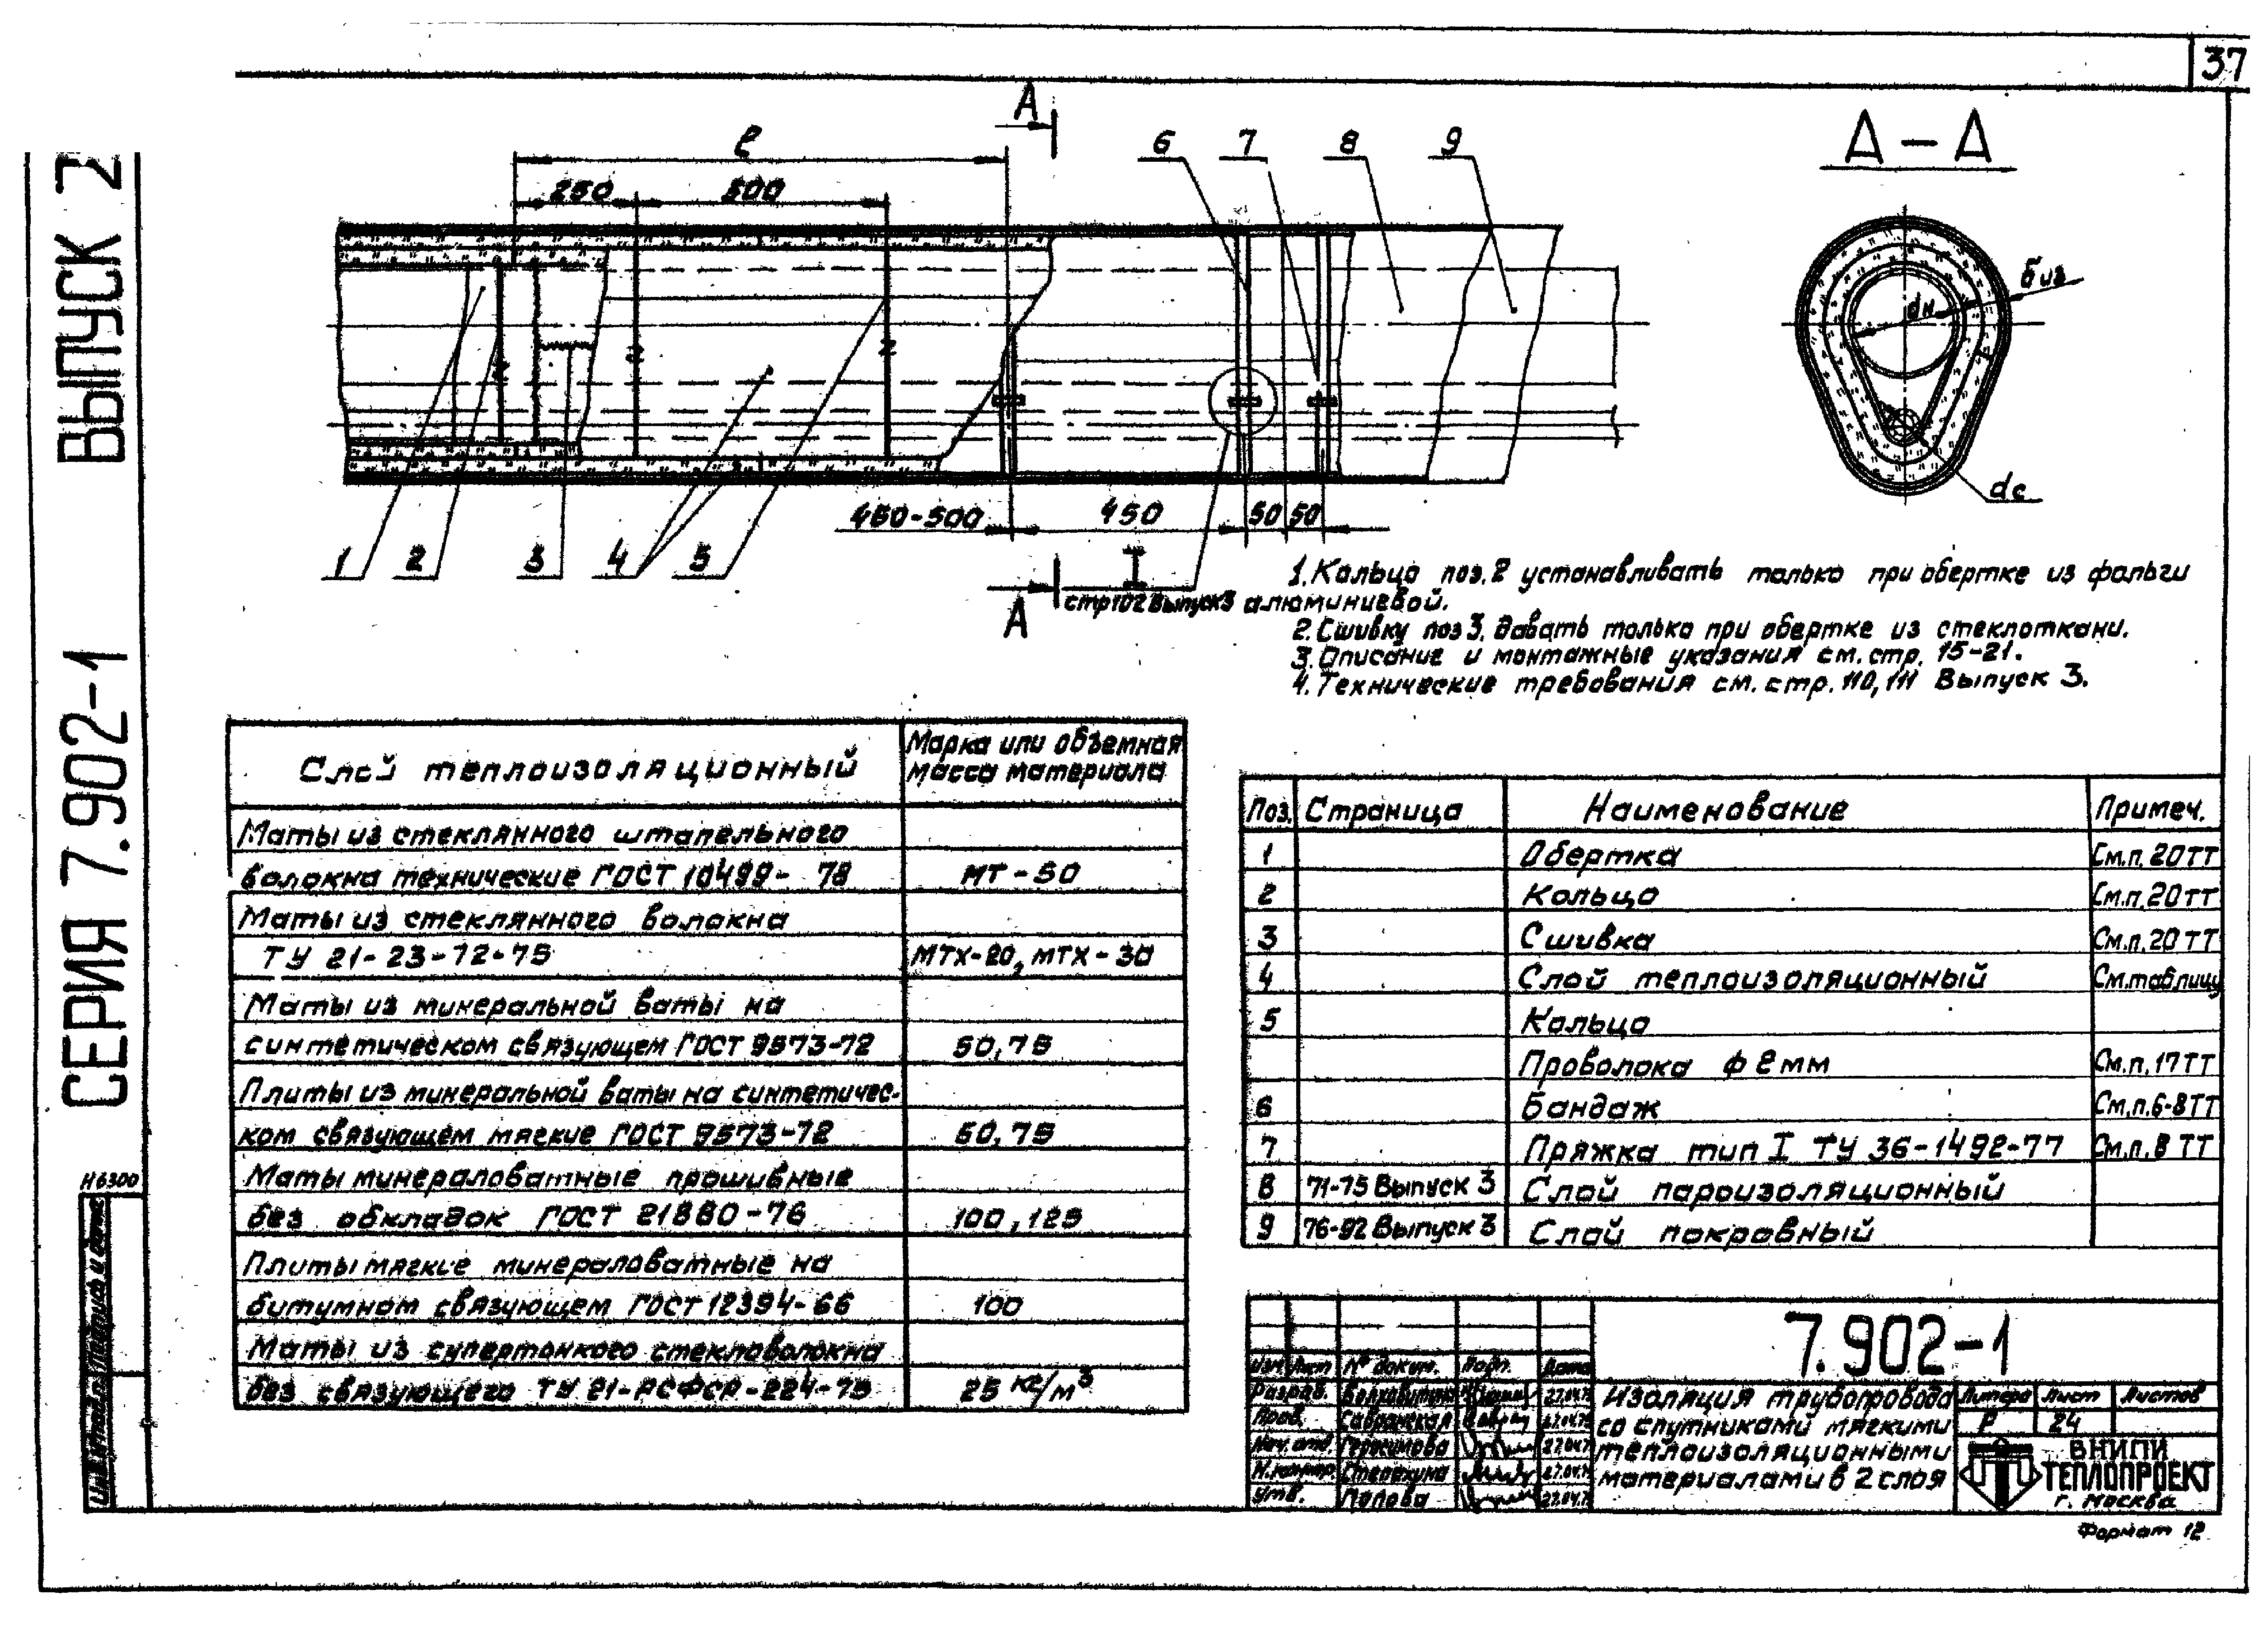 37
СЕРИЯ 7.902-1 ВЫПУСК 2
А
А - А
l
250 500
6 7 8 9
dн
dс
450-500 450 50 50
1 2 3 4 5
I
стр102 Выпуск3
А
1. Кольцо поз. 2 устанавливать только при обертке из фольги
алюминиевой.
2. Сшивку поз 3. давать только при обертке из стеклоткани.
3. Описание и монтажные указания см. стр. 15-21.
4. Технические требования см. стр. 110, 111 Выпуск 3.
Слой теплоизоляционный
Марка или объемная
масса материала
Маты из стеклянного штапельного
волокна технические ГОСТ 10499- 78 МТ-50
Маты из стеклянного волокна
ТУ 21-23-72-75 МТХ-20, МТХ-30
Маты из минеральной ваты на
синтетическом связующем ГОСТ 9573-72 50, 75
Плиты из минеральной ваты на синтетичес-
ком связующем мягкие ГОСТ 9573-72 50, 75
Маты минераловатные прошивные
без обкладок ГОСТ 21880-76 100, 125
Плиты мягкие минераловатные на
битумном связующем ГОСТ 12394-66 100
Маты из супертонкого стекловолокна
без связующего ТУ 21-РСФСР-224-75 25 кг/м³
Поз. Страница Наименование Примеч.
1 Обертка См.п. 20ТТ
2 Кольцо См.п. 20ТТ
3 Сшивка См.п. 20ТТ
4 Слой теплоизоляционный См.таблицу
5 Кольцо
Проволока ф 2мм См.п. 17ТТ
6 Бандаж См.п.6-8ТТ
7 Пряжка тип I ТУ 36-1492-77 См.п. 8 ТТ
8 71-75 Выпуск 3 Слой пароизоляционный
9 76-92 Выпуск 3 Слой покровный
Н6300
Подпись и дата
7.902-1
Изм. Лист № докум. Подп. Дата
Разраб.
Пров. Савранская
Нач. отд. Герасимова
Н.контр.
Утв. Попова
Изоляция трубопровода
со спутниками мягкими
теплоизоляционными
материалами в 2 слоя
Литера Лист Листов
Р 24
ВНИПИ
ТЕПЛОПРОЕКТ
г. Москва
Формат 12